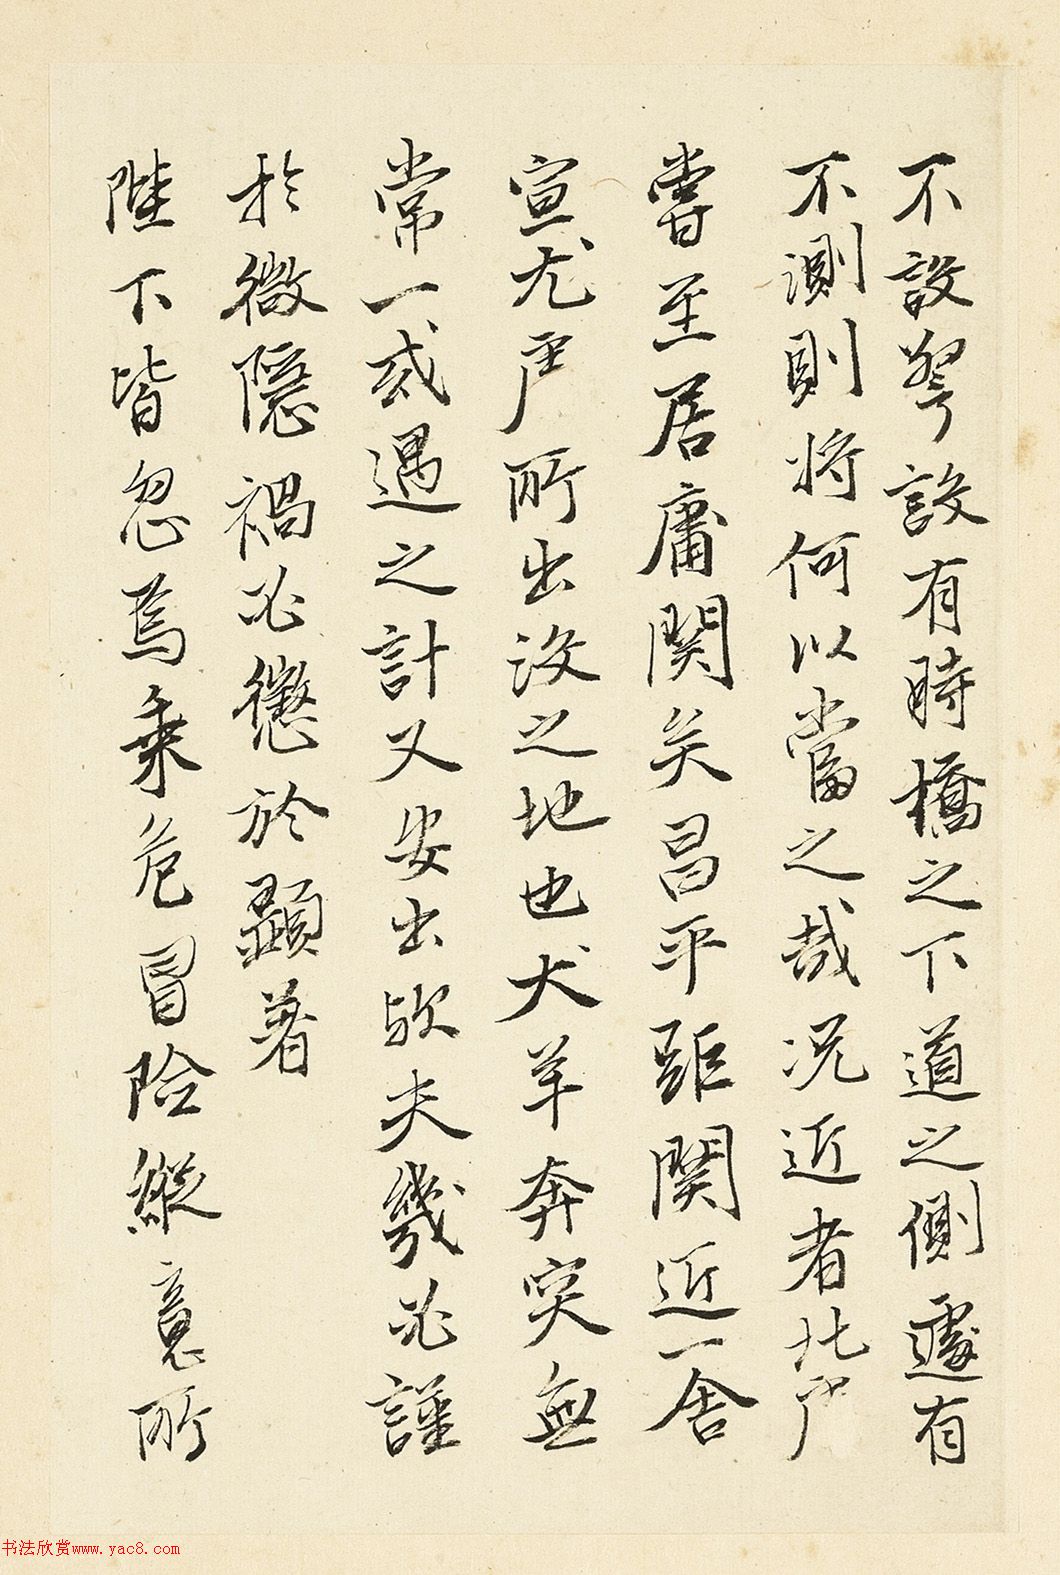 不設設有時橋之下道之側遽有
不測則將何以當之哉况近者北虜
嘗至居庸関矣昌平距関近一舍
宣尤虜所出没之地也犬羊奔突無
常一或遇之計又安出欤夫幾必謹
於微隱禍必懲於顯著
陛下皆忽焉乘危冒險縱意所
书法欣赏www.yac8.com